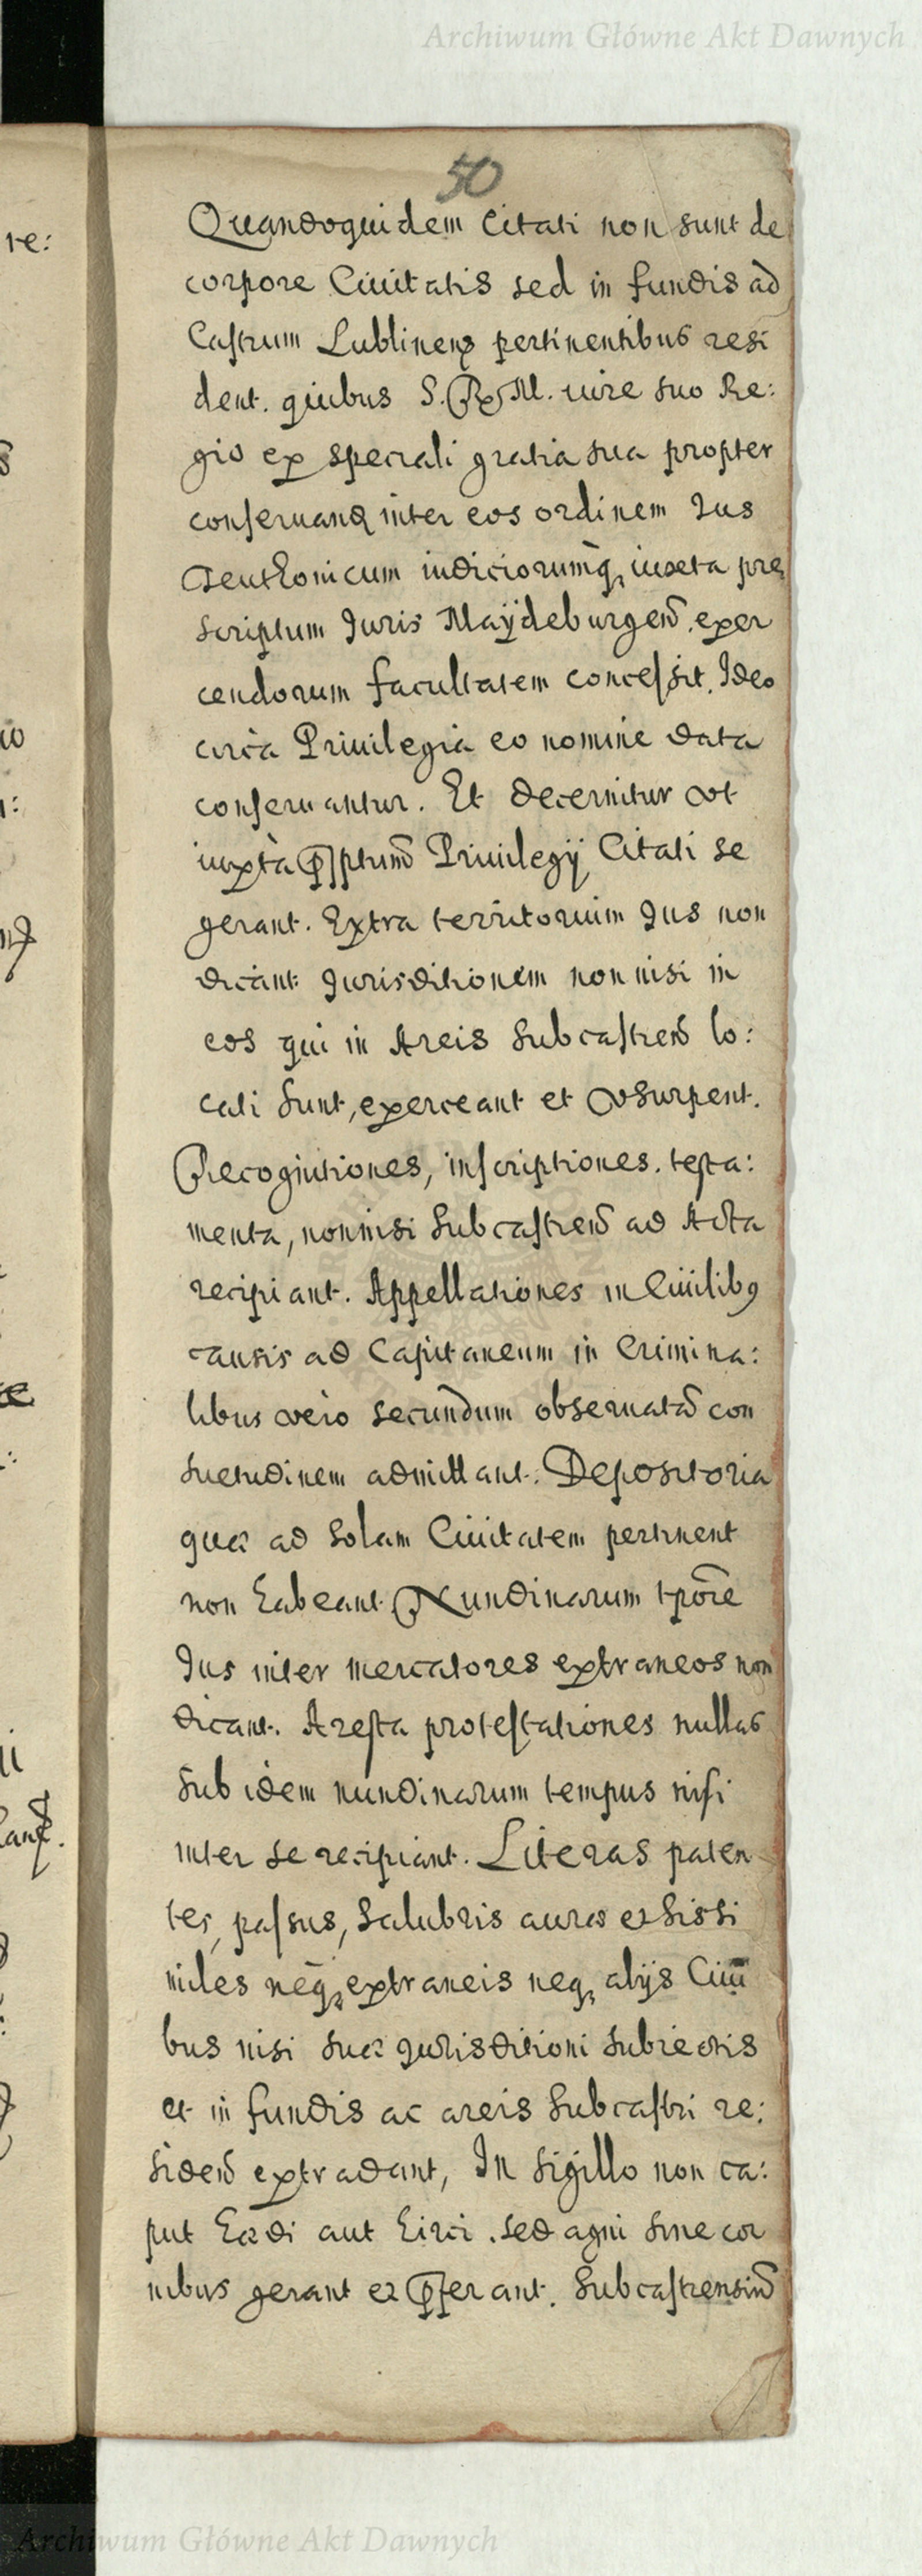 Archiwum Główne Akt Dawnych
50
Quandoquidem Citati non sunt de
corpore Ciuitatis sed in fundis ad
Castrum Lublinens pertinentibus resi
dent. quibus S. R. M. iure suo Re:
gio ex speciali gratia sua propter
conseruand inter eos ordinem Ius
Teuthonicum iudiciorumq, iuxta pre
scriptum Iuris Maÿdeburgen. exer
cendorum facultatem concessit. Ideo
circa Priuilegia eo nomine data
conseruantur. Et decernitur vt
iuxta Priuilegij Citati se
gerant. Extra territorium Ius non
dicant Iurisditionem non nisi in
eos qui in Areis Subcastren lo:
cati sunt, exerceant et vsurpent.
Recognitiones, inscriptiones. testa:
menta, nonnisi Subcastren ad Acta
recipiant. Appellationes in Ciuilib9
causis ad Capitaneum in Crimina:
libus vero secundum obseruata con
suetudinem admittant. Depositoria
quæ ad solam Ciuitatem pertinent
non habeant Nundinarum tpore
Ius inter mercatores extraneos non
dicant. Aresta protestationes nullas
sub idem nundinarum tempus nisi
inter se recipiant. Literas paten
tes, passus, salubris auræ et his si
miles neq, extraneis neq, alijs Ciui
bus nisi suæ Iurisditioni subiectis
et in fundis ac areis Subcastri re:
siden extradant, In sigillo non ca:
put hædi aut hirci. sed agni sine cor
nibus gerant et Subcastrensiu
re:
Archiwum Główne Akt Dawnych